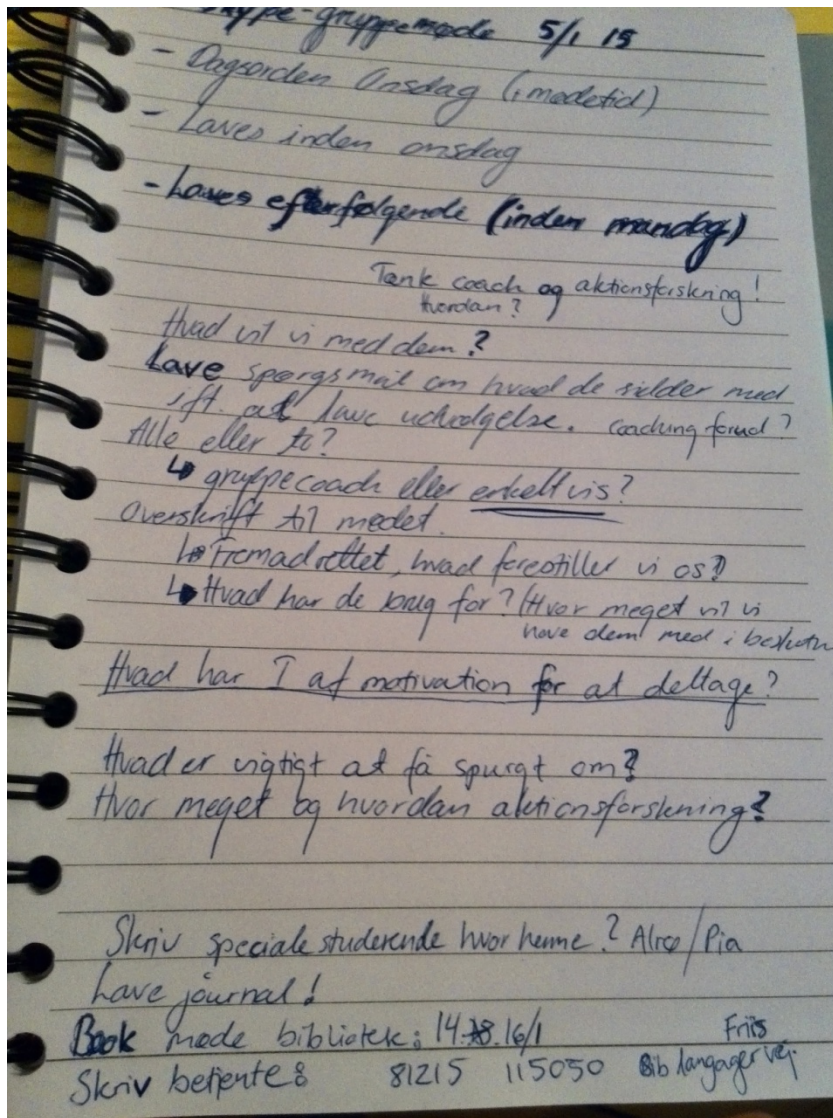 Skype-gruppemøde 5/1 15
- Dagsorden Onsdag (i mødetid)
- Laves inden onsdag
- Laves efterfølgende (inden mandag)
Tænk coach og aktionsforskning!
Hvordan?
Hvad vil vi med dem?
Lave spørgsmål om hvad de sidder med
ift. at lave udvidgelse. Coaching forud?
Alle eller to?
↳ gruppecoach eller enkeltvis?
Overskrift til mødet.
↳ Fremadrettet, hvad forestiller vi os?
↳ Hvad har de brug for? (Hvor meget vil vi
have dem med i beslutn
Hvad har I af motivation for at deltage?
Hvad er vigtigt at få spurgt om?
Hvor meget og hvordan aktionsforskning?
Skriv specialestuderende hvor henne? Alrø/Pia
Lave journal!
Book møde bibliotek: 14. 16/1 Friis
Skriv betjente: 81215 115050 Bib langagervej.